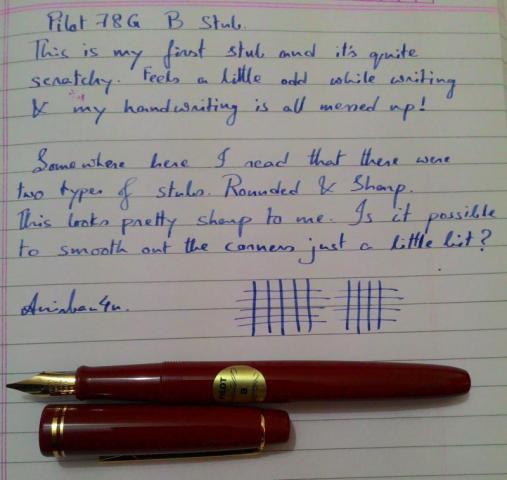 Pilot 78G B Stub.
This is my first stub and it's quite
scratchy. Feels a little odd while writing
& my handwriting is all messed up!
Somewhere here I read that there were
two types of stubs. Rounded & Sharp.
This looks pretty sharp to me. Is it possible
to smooth out the corners just a little bit?
Anirban4u.
PILOT
B